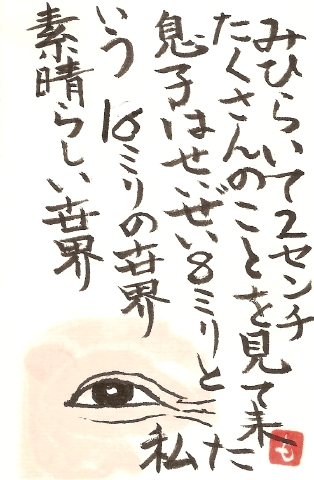 みひらいて2センチ
たくさんのことを見て来た
私
息子はせいぜい8ミリと
いう 16ミリの世界
素晴らしい世界
も